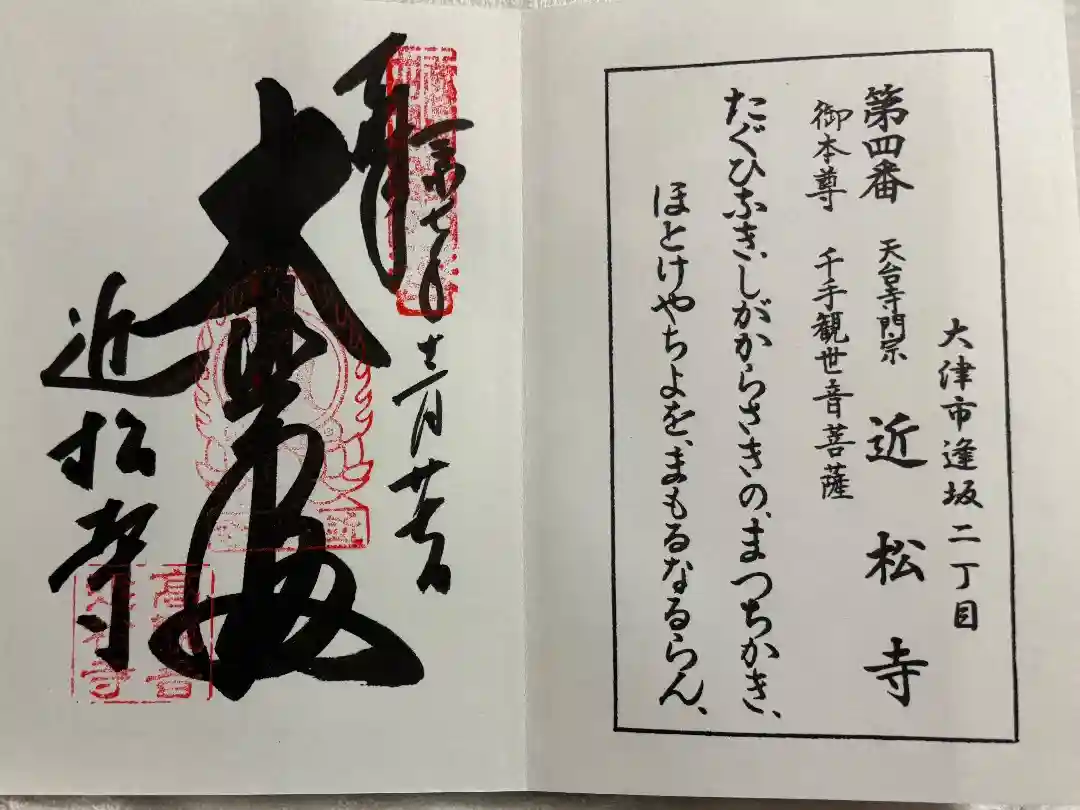 大津市逢坂二丁目
第四番 天台寺門宗 近松寺
御本尊 千手観世音菩薩
たぐひなき、しがからさきの、まつちかき、
ほとけやちよを、まもるなるらん、
奉拝
令和七年十二月
大悲
近松寺
高観音
近松寺